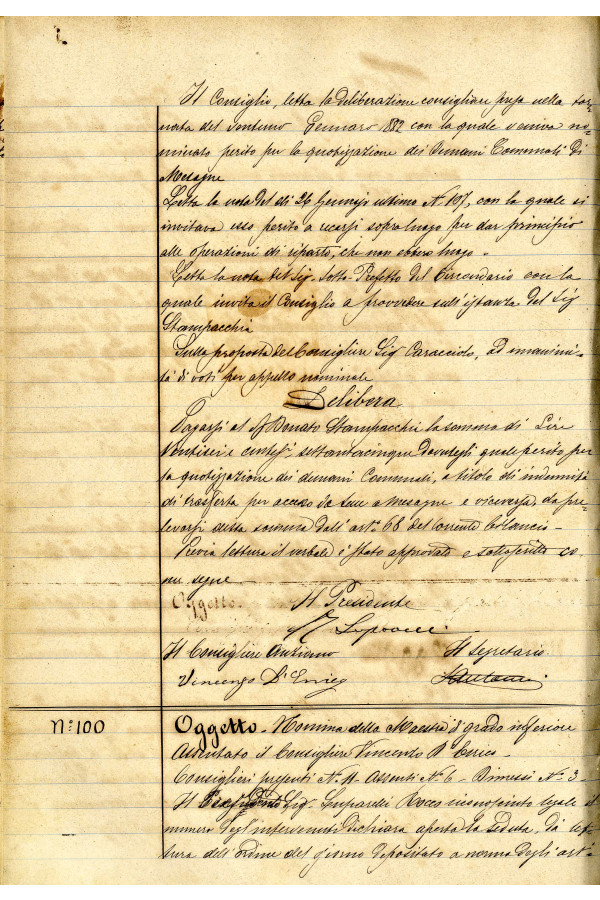 Il Consiglio, letta la deliberazione consigliare presa nella tor-
nata del ventuno Gennaro 1882 con la quale veniva no-
minato perito per la quotizzazione dei Demani Comunali di
Mesagne
Letta la nota del di 26 Gennajo ultimo N. 107, con la quale si
invitava esso perito a recarsi sopra luogo per dar principio
alle operazioni di riparto, che non ebbero luogo.
Letta la nota del Sig. Sotto-Prefetto del Circondario con la
quale invita il Consiglio a provvedere sull'istanza del Sig
Stampacchia
Sulla proposta del Consigliere Sig Caracciolo, ad unanimi-
tà di voti per appello nominale
Delibera
Pagarsi al Donato Stampacchia la somma di Lire
Ventisei e cent. settantacinque dovutegli quale perito per
la quotizzazione dei demani Comunali, a titolo di indennità
di trasferta per accesso da Lecce a Mesagne e viceversa, da pre-
levarsi detta somma dall'art. 68 del corrente bilancio -
Previa lettura il verbale è stato approvato e sottoscritto co
me segue
Oggetto. Il Presidente
Il Consigliere Anziano Il Segretario
Vincenzo D'Enrico
N.º 100 Oggetto - Nomina della Maestra di grado inferiore
Assentato il Consigliere Vincenzo D'Enrico -
Consiglieri presenti N. 11 - Assenti N. 6 - Dimessi N. 3 -
Il Presidente Sig. Rocco riconosciuto legale il
numero degl'intervenuti dichiara aperta la seduta, dà let-
tura dell'ordine del giorno depositato a norma degli art.